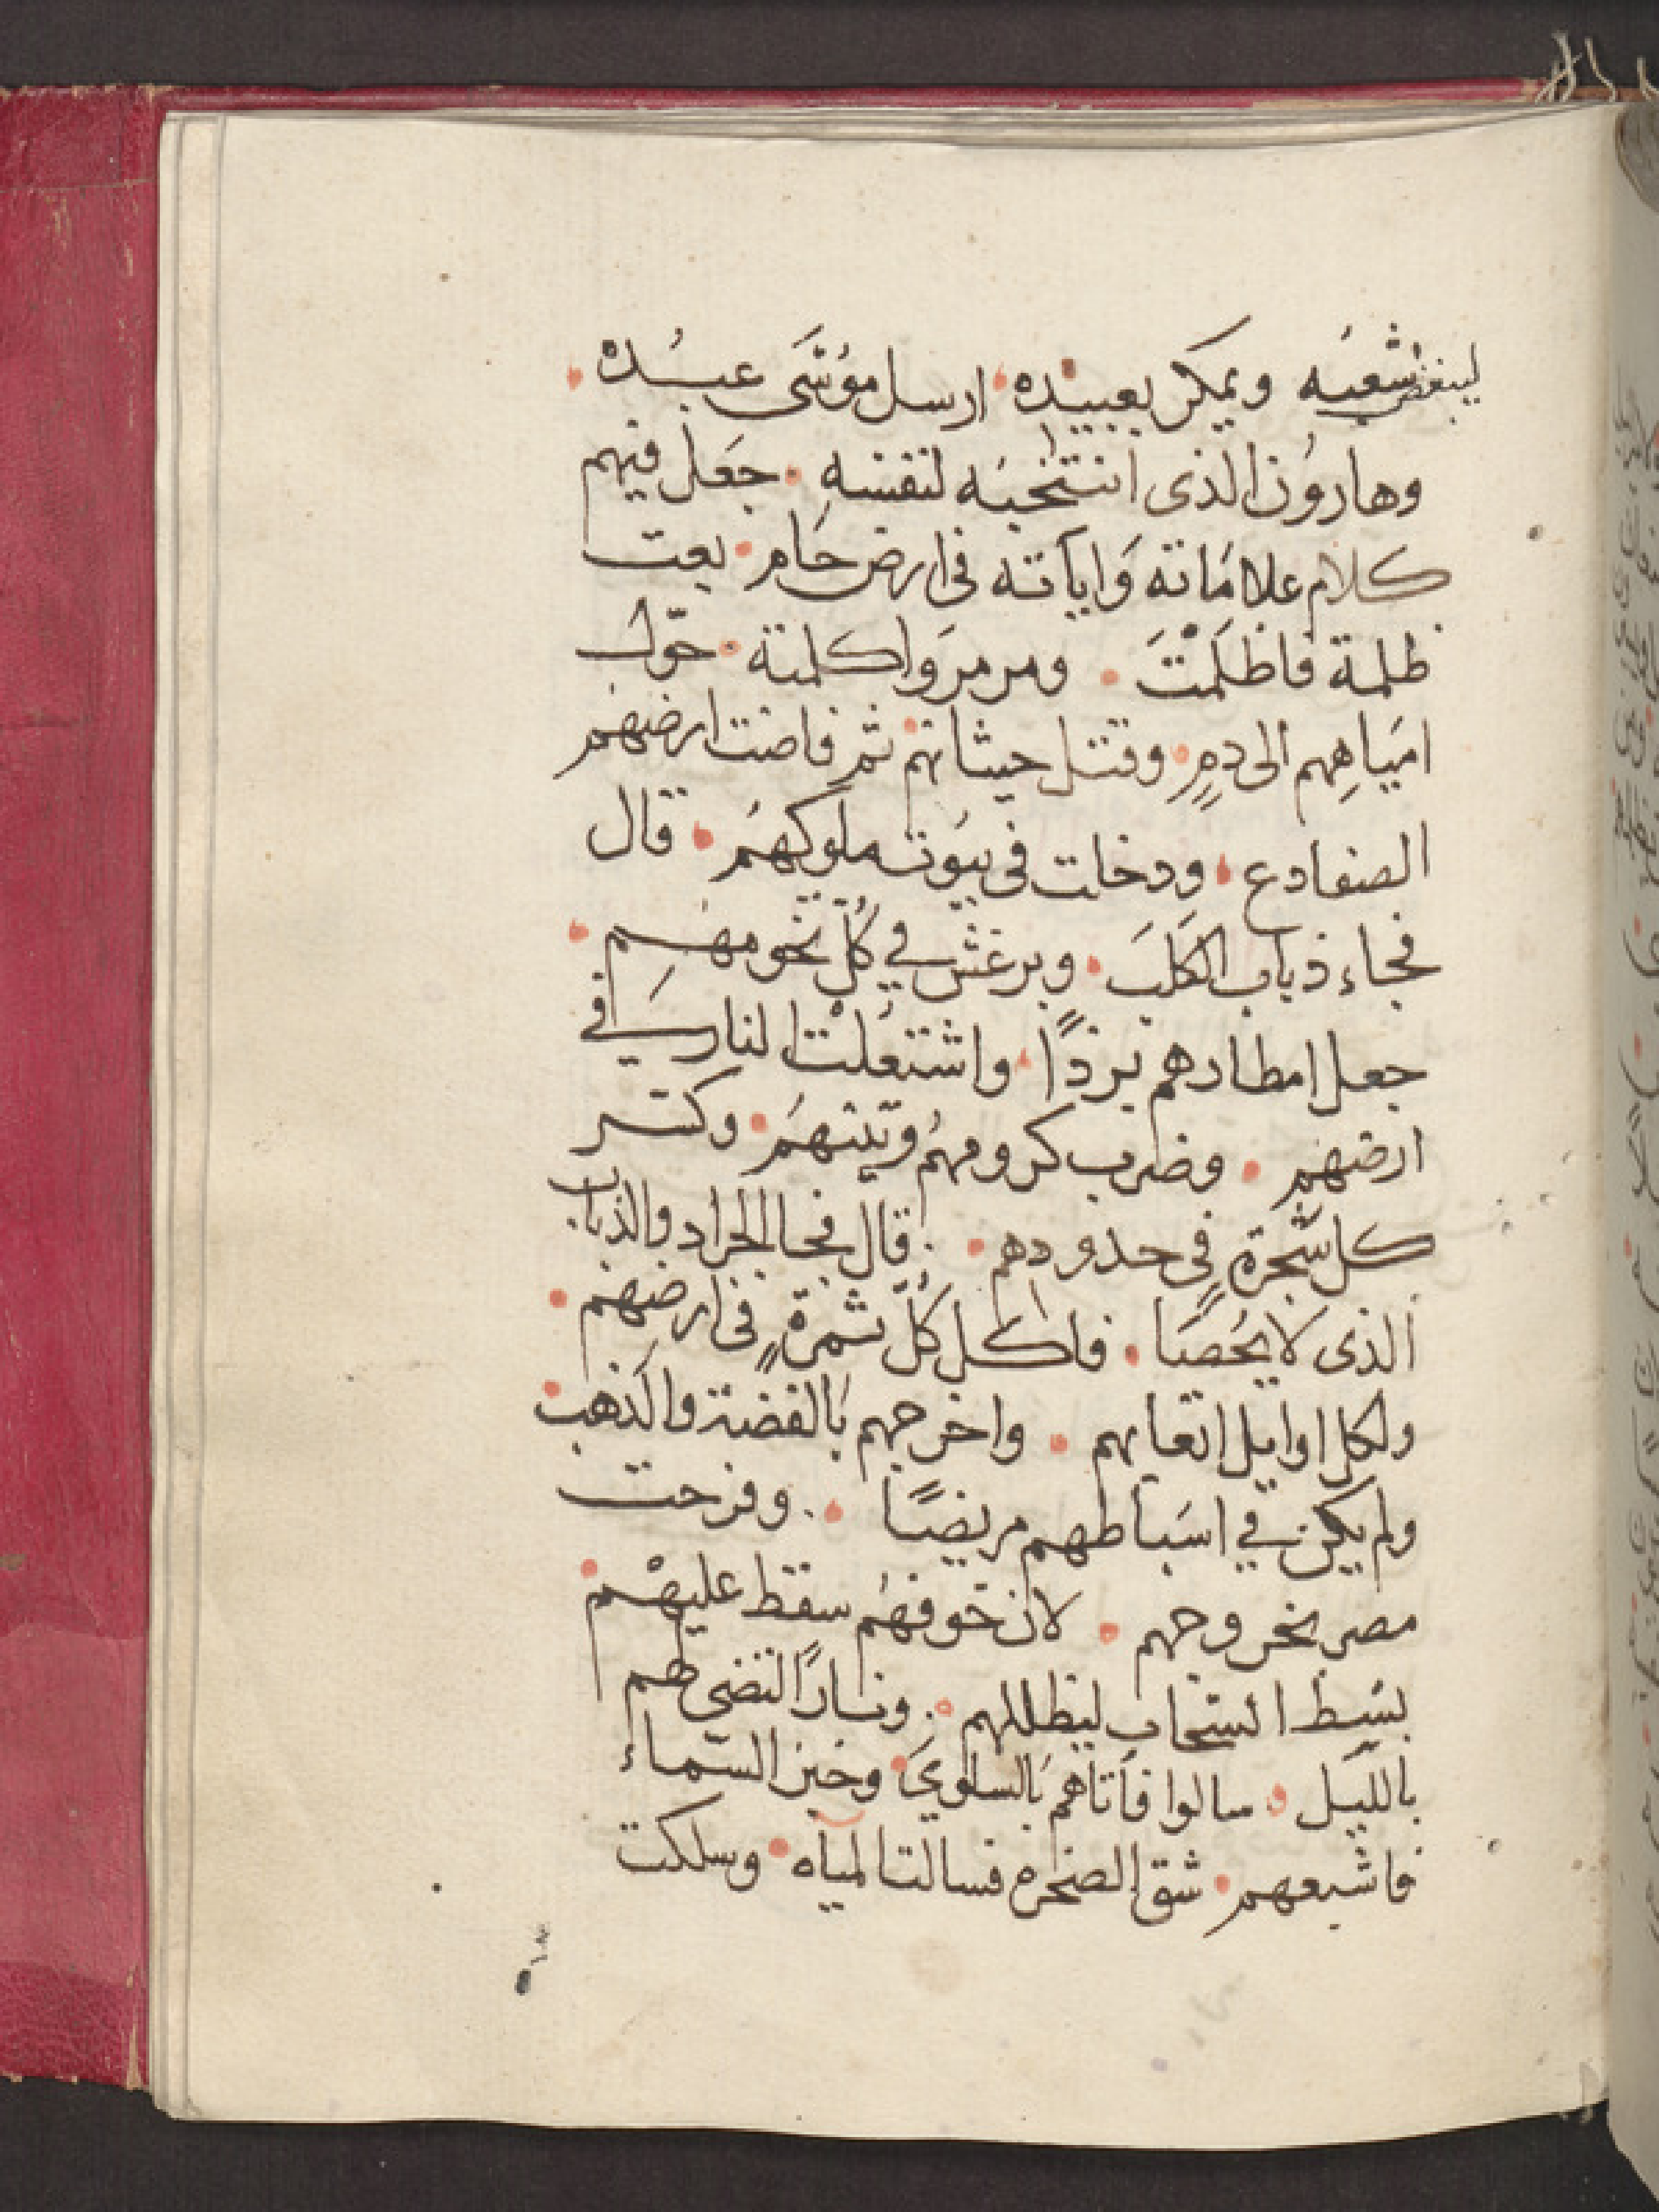 ليبغض شعبه ويمكر بعبيده ارسل موسَى عبدُه
وهارُون الذى انتخبَه لنفسه جَعَل فيهم
كلام علامَاته وَاياَته فى ارض حَام بعت
ظلمة فاظلمْتَ ومرمرَوا كلمته حوّل
اميَاهِهم الى دمٍ وقتل حيتانهم ثم فاضت ارضهم
الضفادع ودخلت فى بيُوت ملوكهُم قال
فجاء ذباب الكَلبَ وبرغش في كُلّ تخومهم
جعل امطارهم بردًا واشتعُلتْ النار في
ارضهم وضرب كرومهُم وتينهُم وكسر
كل شَجرةٍ فى حدودهم قال فجا الجراد والذباب
الذى لا يُحصَا فاكل كُلّ ثمرةٍ فى ارضهم
ولكل اوايل اتعابهم واخرجهم بَالفضة والذهب
ولم يكن في اسَباطهم مريضًا وفرحت
مصر بخروجهم لان خوفهُم سقط عليهْم
بسَط السَحاب ليظللهم ونارًا لتضى لهم
بالليَل سالوا فاَتاهم بَالسلوىَ وخبز السَماء
فاشبعهم شق الصخره فسالت المياه وسلكت